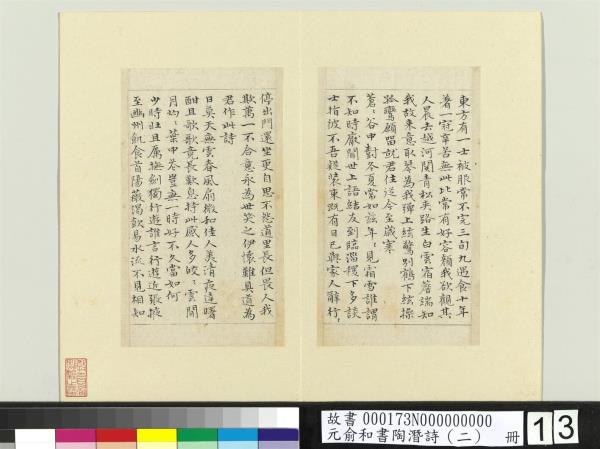 東方有一士被服常不完三旬九遇食十年
著一冠辛苦無此比常有好容顏我欲觀其
人晨去越河關青松夾路生白雲宿簷端知
我故來意取琴為我彈上絃驚別鶴下絃操
孤鸞願留就君住從今至歲寒
蒼〻谷中樹冬夏常如茲年〻見霜雪誰謂
不知時厭聞世上語結友到臨淄稷下多談
士指彼不吾疑裝束既有日已與家人辭行〻
停出門還坐更自思不怨道里長但畏人我
欺萬一不合意永為世笑之伊懷難具道為
君作此詩
日莫天無雲春風扇微和佳人美清夜達曙
酣且歌歌竟長歎息持此感人多皎〻雲間
月灼〻葉中花豈無一時好不久當如何
少時壯且厲撫劍獨行遊誰言行遊近張掖
至幽州飢食首陽薇渴飲易水流不見相知
故書000173N000000000
元俞和書陶潛詩(二) 冊
13